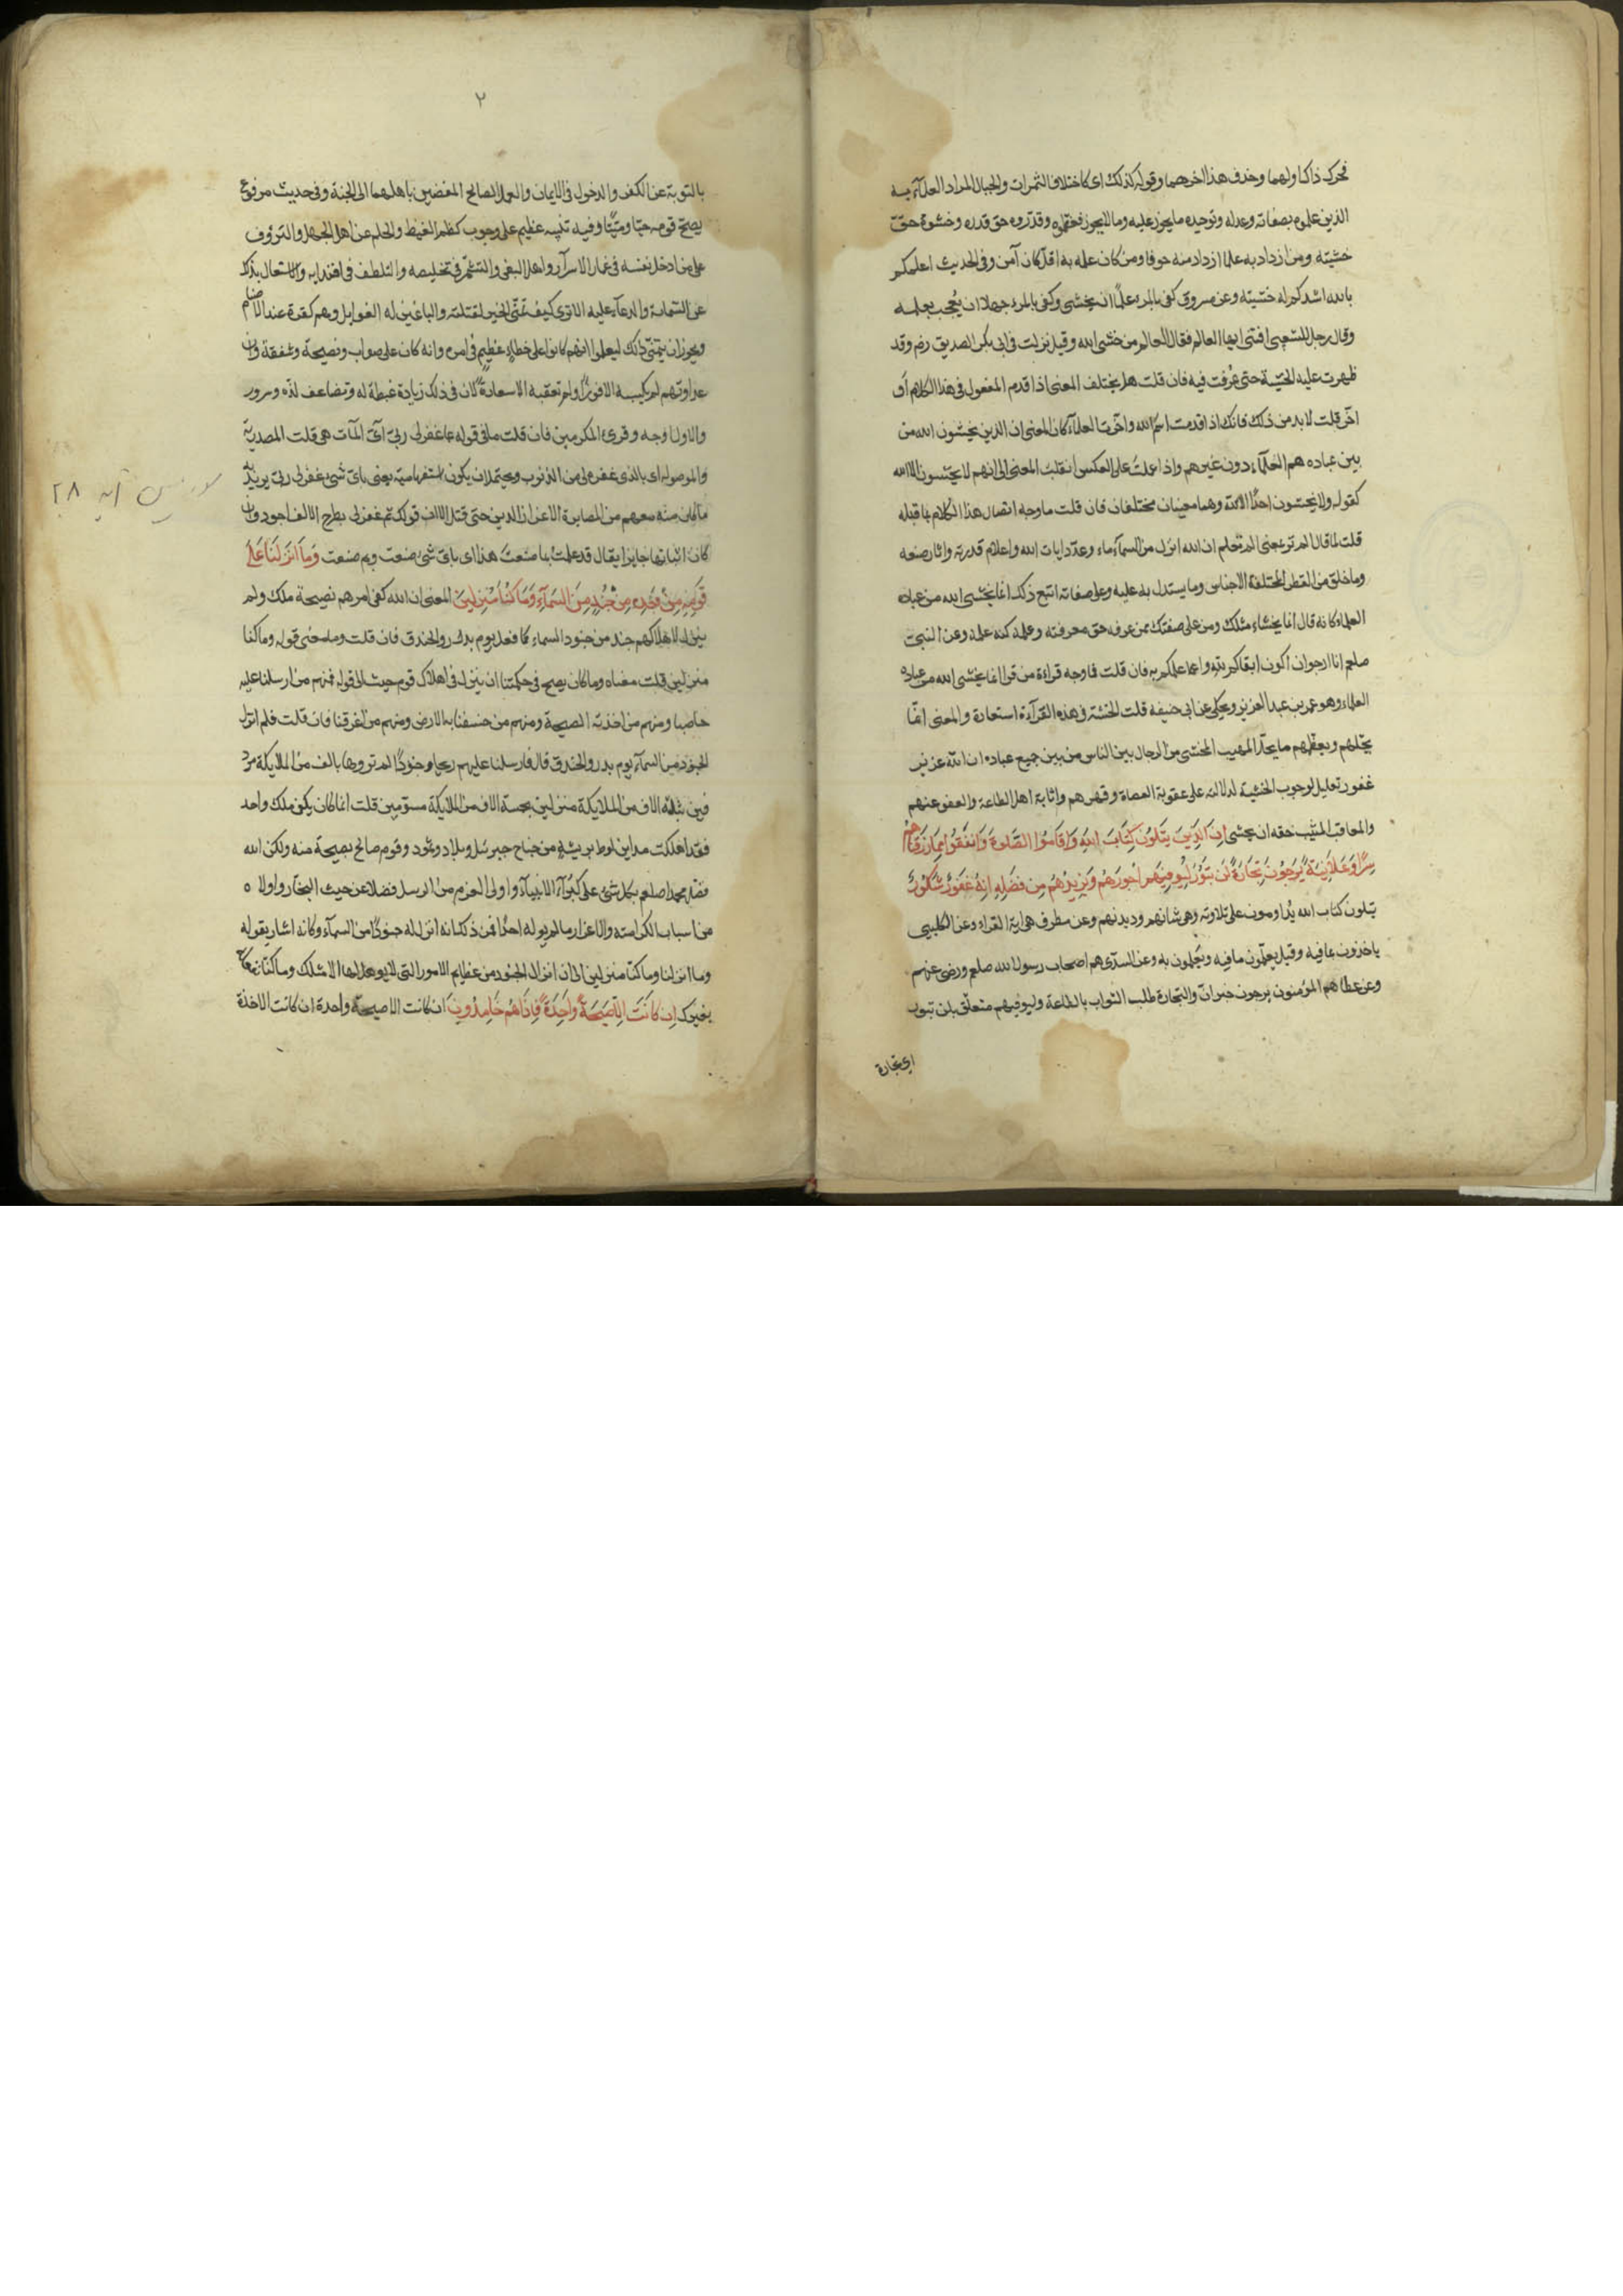 فحرك ذاك اولهما وحذف هذا اخرهما وقوله كذلك اى كاختلاف الثمرات والجبال المراد العلماء به
الذين علموه بصفاته وعدله وتوحيده ما يجوز عليه وما لا يجوز فعظموه وقدروه حق قدره وخشوه حق
خشيته ومن ازداد به علما ازداد منه خوفا ومن كان علمه به اقل كان آمن وفى الحديث اعلمكم
بالله اشدكم له خشيته وعن مسروق كفى بالمرء علمًا ان يخشى وكفى بالمرء جهلا ان يُعجب بعلمه
وقال رجل للشعبى افتنى ايها العالم فقال العالم من خشى الله وقيل نزلت فى ابى بكر الصديق رضه وقد
ظهرت عليه الخشية حتى عُرفت فيه فان قلت هل يختلف المعنى اذا قدم المفعول فى هذا الكلام أو
اخّر قلت لا بد من ذلك فانك اذا قدمت اسم الله واخّرت العلماء كان المعنى ان الذين يخشون الله من
بين عباده هم العلماء دون غيرهم واذا عملت على العكس انقلب المعنى الى انهم لا يخشون الا الله
كقوله ولا يخشون احدًا الا الله وهما معنيان مختلفان فان قلت ما وجه اتصال هذا الكلام بما قبله
قلت لما قال الم تر بمعنى الم تعلم ان الله انزل من السماء ماء وعدّد ايات الله واعلام قدرته واثار صنعه
وما خلق من الفطر المختلفة الاجناس وما يستدل به عليه وعلى صفاته اتبع ذلك انما يخشى الله من عباده
العلماء كانه قال انما يخشاه مثلك ومن على صفتك ممن عرفه حق معرفته وعلمه كنه علمه وعن النبى
صلعم انا ارجو ان اكون اتقاكم لله واعلمكم به فان قلت فما وجه قراءة من قرا انما يخشى الله من عباده
العلماء وهو عمر بن عبد العزيز ويحكى عن ابى حنيفه قلت الخشية فى هذه القراءة استعارة والمعنى انما
يجلهم ويعظمهم ما يجلّ المهيب المخشى من الرجال بين الناس من بين جميع عباده ان الله عزيز
غفور تعليل لوجوب الخشية لدلالته على عقوبة العصاة وقهرهم واثابة اهل الطاعة والعفو عنهم
والمعاقب المثيب حقه ان يخشى إِن الَّذِينَ يَتلُونَ كِتَابَ اللهِ وَاَقَامُوا الصَّلوةَ وَاَنفَقُوا مِمَا رَزَقنَاهُمْ
سِرًّا وَعَلَانِيَةً يَرجُونَ تِجَارَةً لَن تَبُورَ لِيُوفِيَهُم اُجُورَهُم وَيَزِيدَهُم مِن فَضلِهِ اِنهُ غَفُورٌ شَكُورٌ
يتلون كتاب الله يُداومون على تلاوته وهى شانهم وديدنهم وعن مطرف هى اية القراء وعن الكلبى
ياخذون بما فيه وقيل يعلمون ما فيه ويعملون به وعن السدّى هم اصحاب رسول الله صلعم ورضى عنهم
وعن عطا هم المؤمنون يرجون خبر انّ والتجارة طلب الثواب بالطاعة وليوفيهم متعلق بلن تبور
اى تجارة
٢
بالتوبة عن الكفر والدخول فى الايمان والعمل الصالح المفضيين باهلهما الى الجنة وفى حديث مرفوع
نصح قومه حيّا وميّتًا وفيه تنبيه عظيم على وجوب كظم الغيظ والحلم عن اهل الجهل والترؤف
على من ادخل نفسه فى غمار الاسرار واهل البغى والتشمّر فى تخليصه والتلطف فى افتدايه والاشتغال بذلك
عن الشماتة والدعاء عليه الا ترى كيف تمنّى الخير لقتلته والباغين له الغوايل وهم كفرة عبدة الاصنام
ويجوز ان يتمنى ذلك ليعلموا انهم كانوا على خطاء عظيم فى امره وانه كان على صواب ونصيحة وشفقة وان
عداوتهم لم يكسبه الا فوزًا ولم تعقبه الا سعادةً لان فى ذلك زيادة غبطة له وتضاعف لذه وسرور
والاول اوجه وقرئ المكرمين فان قلت ما فى قوله بما غفر لى ربى اىّ المآت هى قلت المصدرية
والموصولة اى بالذى غفره لى من الذنوب ويحتمل ان يكون استفهامية يعنى باىّ شئ غفر لى ربى يريد به
ما كان منه معهم من المصابرة الاعزاز الدين حتى قتل الا ان قولك بم غفر لى بطرح الالف اجود وان
كان اثباتها جايزا يقال قد علمتُ بما صنعت هذا اى باىّ شئ صنعت وبم صنعت وَمَا اَنزَلنَا عَلَى
قَومِهِ مِن بَعدِهِ مِن جُندٍ مِنَ السَّمَآءِ وَمَا كُنَّا مُنزِلِينَ المعنى ان الله كفى امرهم بصيحة ملك ولم
ينزل لاهلاكهم جند من جنود السماء كما فعل يوم بدر والخندق فان قلت وما معنى قوله وما كنا
منزلين قلت معناه وما كان يصح فى حكمتنا ان ينزل فى اهلاك قوم حيث الى قوله فمنهم من ارسلنا عليه
حاصبا ومنهم من اخذته الصيحة ومنهم من خسفنا به الارض ومنهم من اغرقنا فان قلت فلم انزل
الجنود من السماء يوم بدر والخندق قال فارسلنا عليهم ريحا وجنودًا لم تروها بالف من الملايكة مرد
فين بثلثه الاف من الملايكة منزلين بخمسة الاف من الملايكة مسوّمين قلت انما كان يكفى ملك واحد
فقد اهلكت مداين لوط بريشة من جناح جبرئيل وبلاد وثمود وقوم صالح بصيحة منه ولكن الله
فضل محمدا صلعم بكل شئ على كبرآء الانبياء واولى العزم من الرسل فضلا عن حبيب النجار واولاه
من اسباب الكرامته والاعزاز ما لم يوله احدًا فمن ذلك انه انزل له جنودًا من السماء وكانه اشار بقوله
وما انزلنا وما كنا منزلين الى ان انزال الجنود من عظايم الامور التى لا يوهل لها الا مثلك وما كنا نفعله
بغيرك اِن كَانَتْ اِلَّا صَيحَةً وَاحِدَةً فَاِذَا هُم خَامِدُونَ ان كانت الا صيحة واحدة ان كانت الاخذة
سوره يس آيه ٢٨